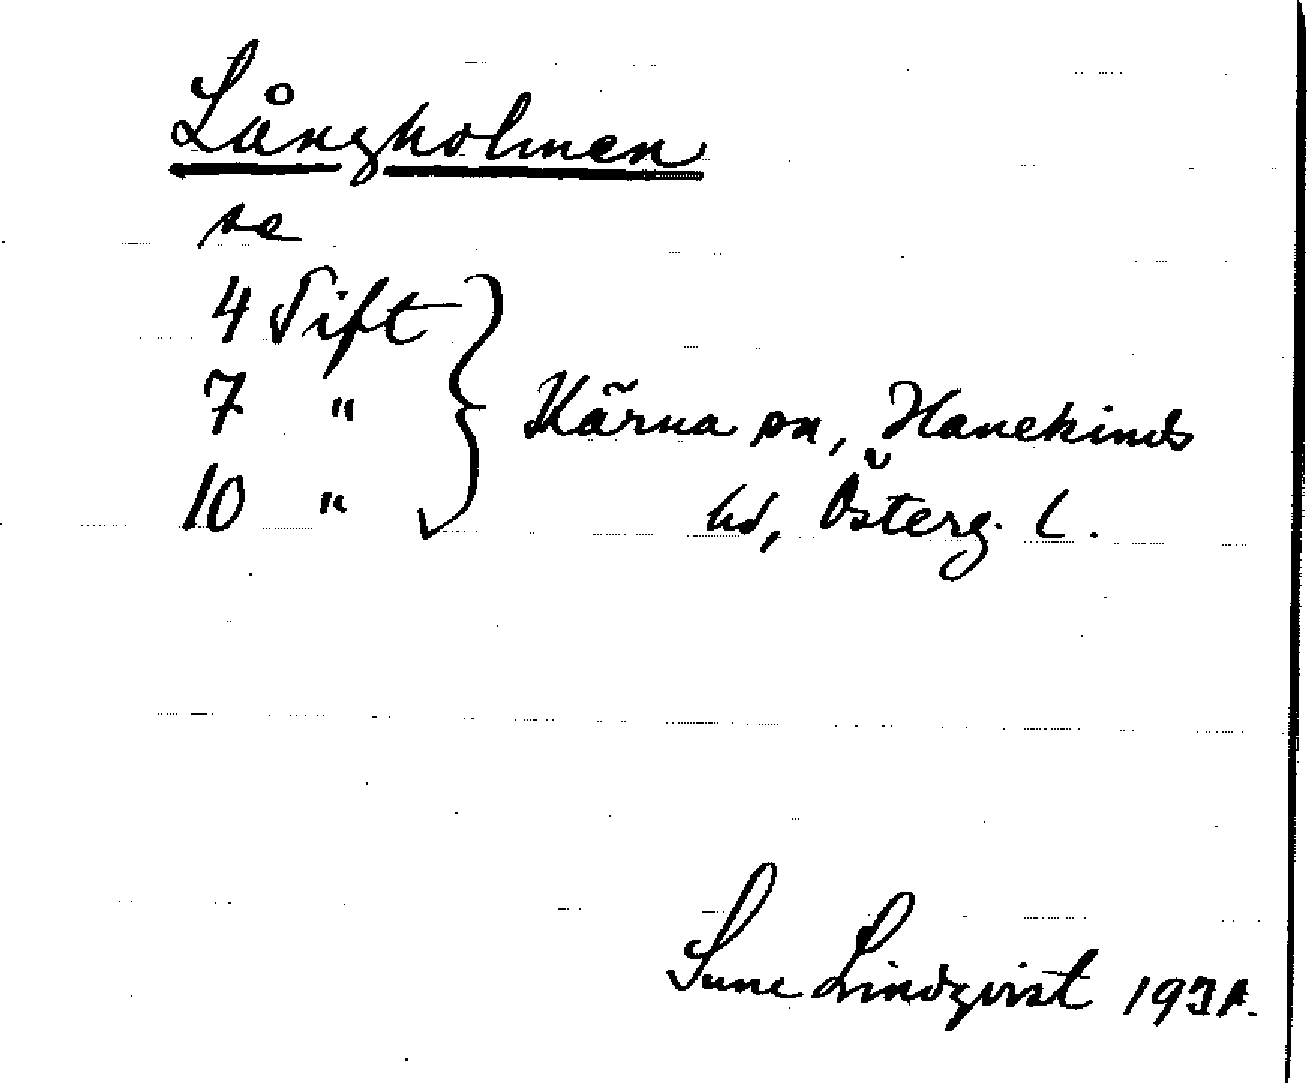 Långholmen
se
4 Tift
7 "
10 "
Kärna sn, Hanekinds
hd, Österg. L.
Sune Lindqvist